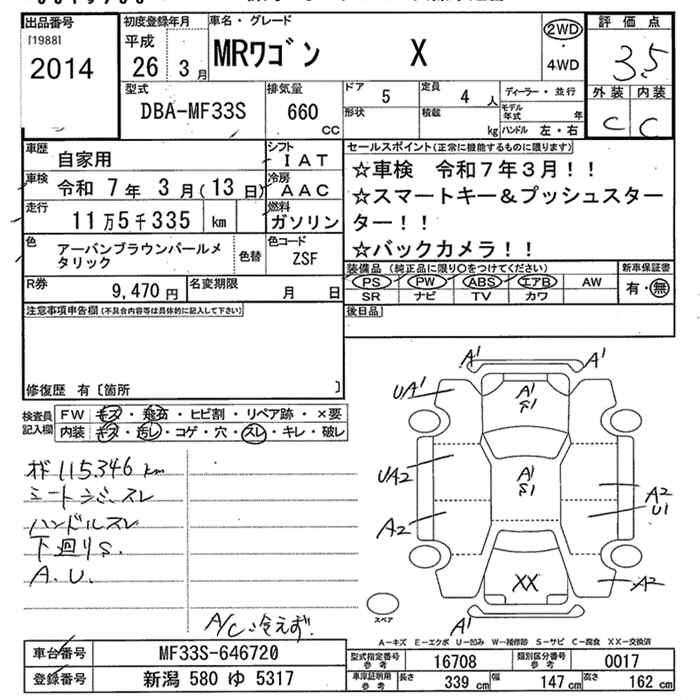 出品番号
[1988]
2014
初度登録年月
平成
26 3月
車名・グレード
MRワゴン X
2WD
4WD
評価点
3.5
外装 内装
C C
型式
DBA-MF33S
排気量
660 cc
ドア 5
定員 4 人
形状
積載 kg
ディーラー・並行
モデル年式 年
ハンドル 左・右
車歴 自家用
車検 令和 7年 3月(13日)
走行 11万5千335 km
色 アーバンブラウンパールメタリック
色替
シフト IAT
冷房 AAC
燃料 ガソリン
色コード ZSF
R券 9,470 円
名変期限 月 日
セールスポイント(正常に機能するものに限ります)
☆車検 令和7年3月!!
☆スマートキー&プッシュスター
ター!!
☆バックカメラ!!
装備品 (純正品に限り○をつけてください)
PS PW ABS エアB AW
SR ナビ TV カワ
新車保証書
有・無
後日品
注意事項申告欄(不具合内容等は具体的に記入して下さい)
修復歴 有〔箇所 〕
検査員
記入欄
FW キズ・飛石・ヒビ割・リペア跡・×要
内装 キズ・汚レ・コゲ・穴・スレ・キレ・破レ
115,346 km
シートシミ、スレ
ハンドルスレ
下廻りS.
A.U.
A/C冷えず.
A1 A1
UA1
A1
S1
UA2
A1
S1
A2
U1
A2
XX
A2
A1
スペア
A-キズ E-エクボ U-凹み W-補修跡 S-サビ C-腐食 XX-交換済
車台番号 MF33S-646720
登録番号 新潟 580 ゆ 5317
型式指定番号 参考 16708
類別区分番号 参考 0017
車庫証明用 参考 長さ 339 cm 幅 147 cm 高さ 162 cm